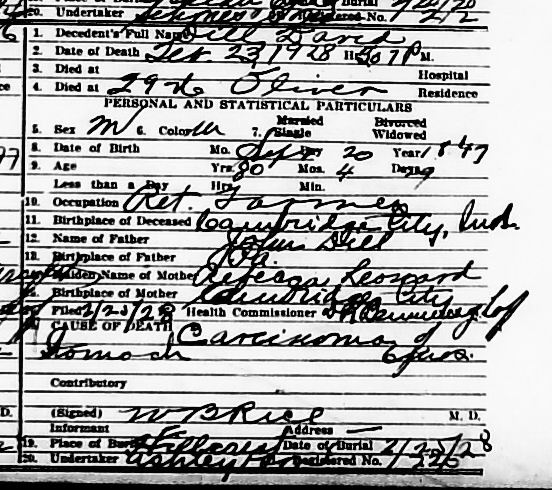 20. Undertaker Registered No. 212
1. Decedent's Full Name Dill David
2. Date of Death Feb. 23, 1928 H. 50 7 P M.
3. Died at Hospital
4. Died at 29 N Oliver Residence
PERSONAL AND STATISTICAL PARTICULARS
5. Sex M 6. Color W 7. Married Single Divorced Widowed
8. Date of Birth Mo. Sept Day 20 Year 1847
9. Age Yrs. 80 Mos. 4 Days
Less than a Day Hrs. Min.
10. Occupation Ret. Farmer
11. Birthplace of Deceased Cambridge City, Ind.
12. Name of Father John Dill
13. Birthplace of Father
Maiden Name of Mother Rebecca Leonard
Birthplace of Mother Cambridge City
Filed 2/25/28 Health Commissioner
CAUSE OF DEATH Carcinoma of
Stomach 6 mos.
Contributory
(Signed) W B Rice M. D.
Informant Address
19. Place of Burial Hillcrest Date of Burial 2/25/28
20. Undertaker Registered No. 226